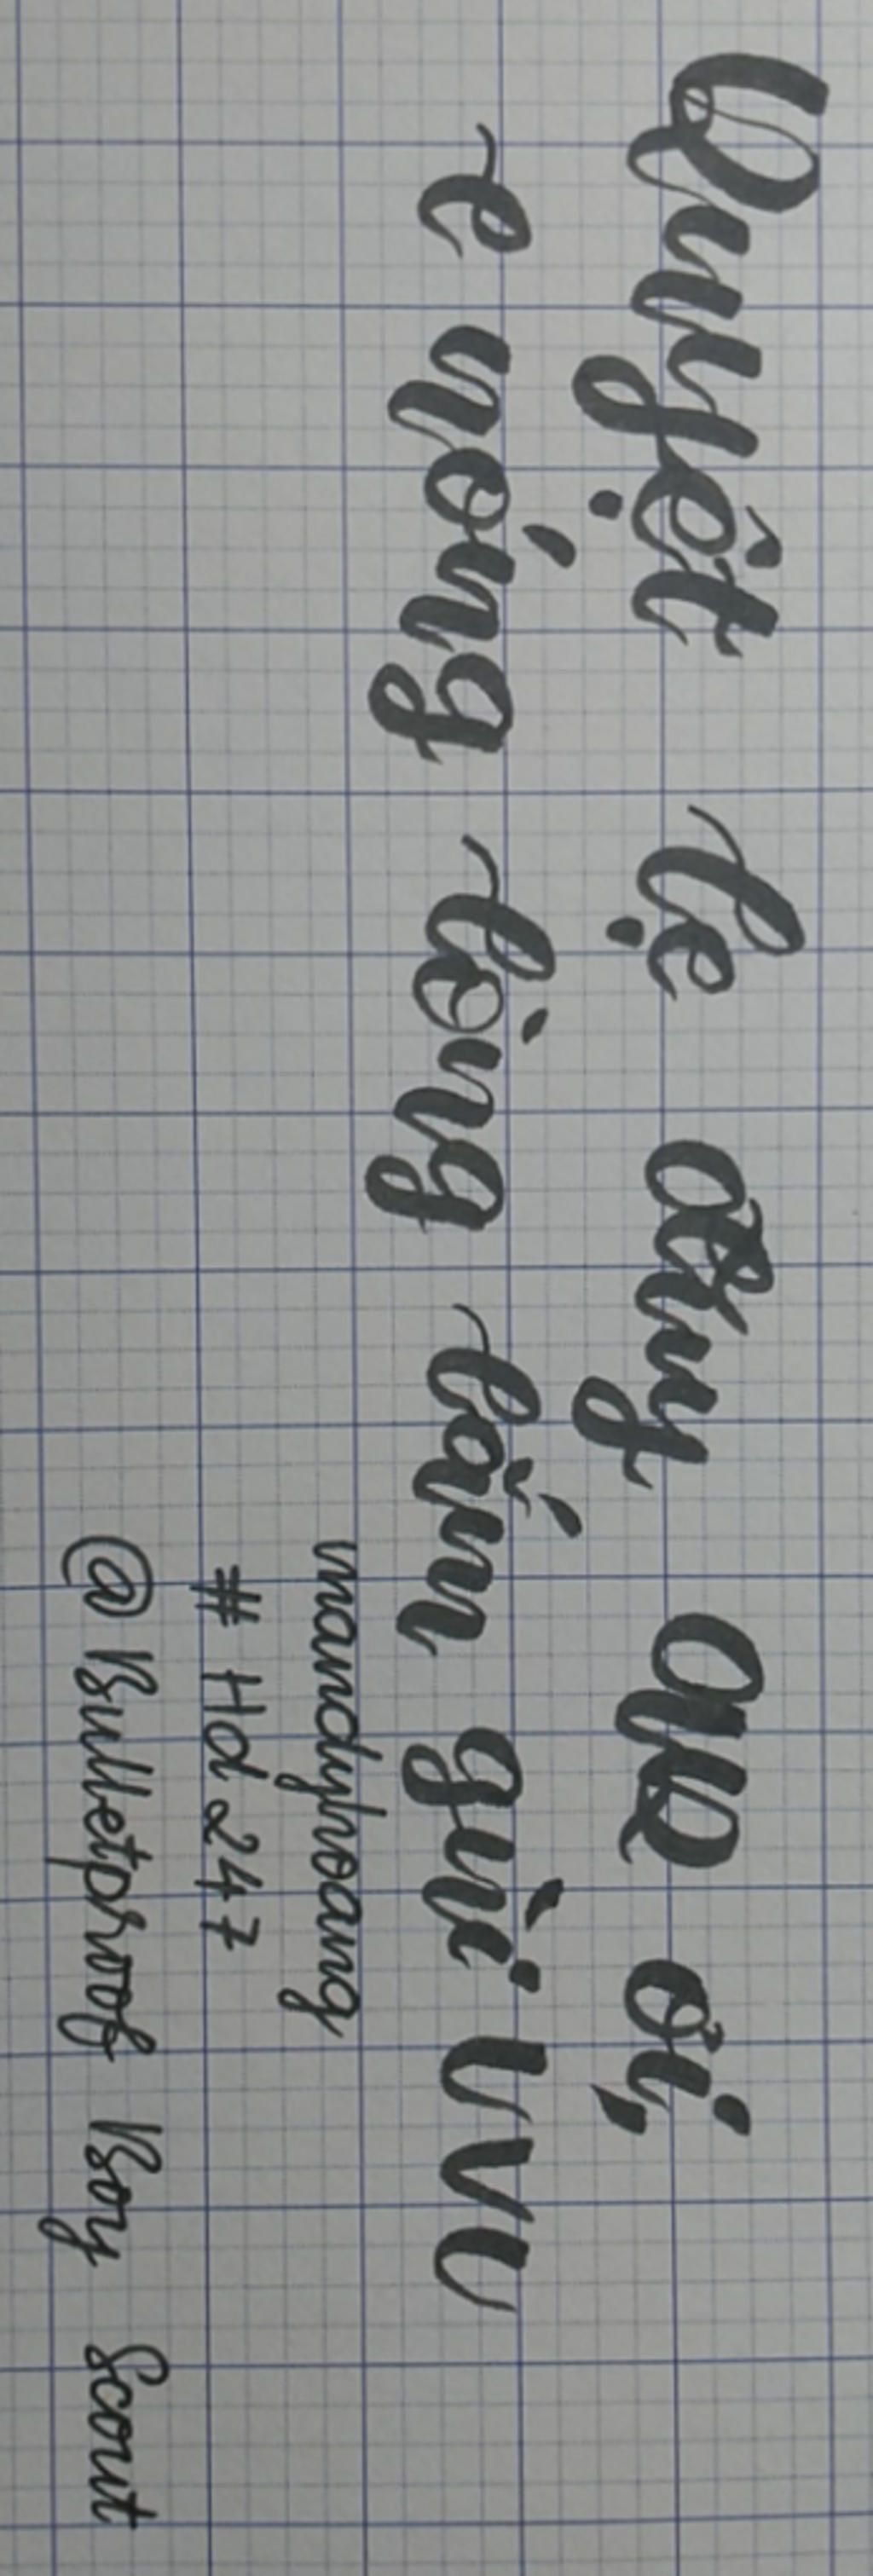 Duyệt lẹ ấy ơi,
e nóng lòng lắm gùi UVU
mandyhoang
# Hd 247
@ Bulletproof Boy Scout